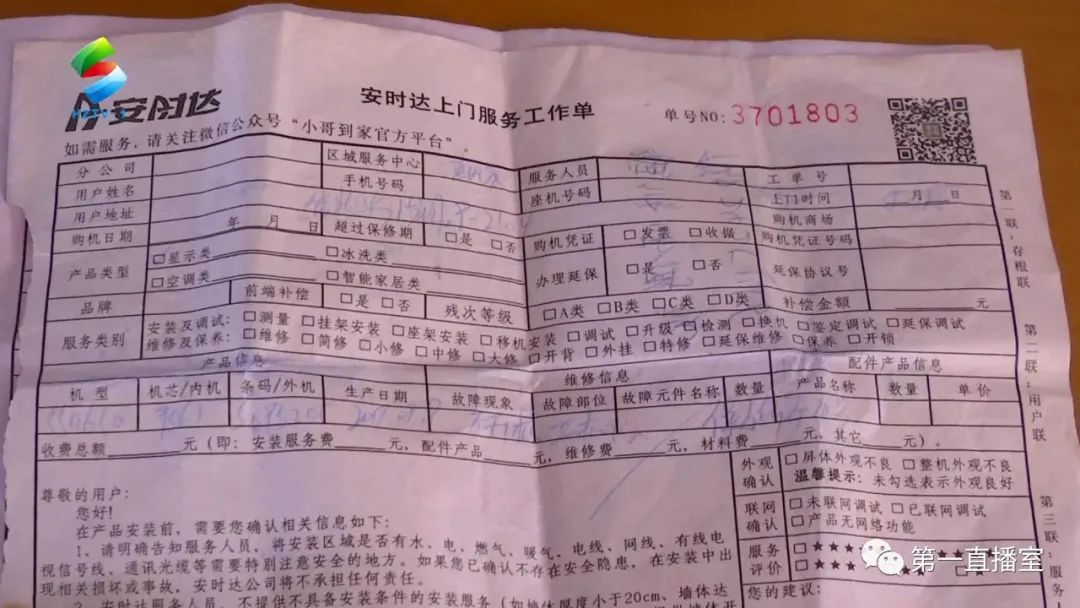 安时达
安时达上门服务工作单
单号NO:3701803
如需服务，请关注微信公众号“小哥到家官方平台”。
分公司 区域服务中心 服务人员 工单号
用户姓名 手机号码 座机号码 上门时间 月 日
用户地址 购机商场
购机日期 年 月 日 超过保修期 □是 □否 购机凭证 □发票 □收据 购机凭证号码
产品类型 □显示类 □冰洗类
□空调类 □智能家居类
办理延保 □是 □否 延保协议号
品牌 前端补偿 □是 □否 残次等级 □A类 □B类 □C类 □D类 补偿金额 元
服务类别 安装及调试: □测量 □挂架安装 □座架安装 □移机安装 □调试 □升级 □检测 □换机 □鉴定调试 □延保调试
维修及保养: □维修 □简修 □小修 □中修 □大修 □开背 □外挂 □特修 □延保维修 □保养 □开锁
产品信息 维修信息 配件产品信息
机型 机芯/内机 条码/外机 生产日期 故障现象 故障部位 故障元件名称 数量 产品名称 数量 单价
收费总额 元（即：安装服务费 元、配件产品 元，维修费 元，材料费 元，其它 元）。
外观确认 □屏体外观不良 □整机外观不良
温馨提示：未勾选表示外观良好
联网确认 □未联网调试 □已联网调试
□产品无网络功能
服务评价 □★★★★★
您的建议：
尊敬的用户：
您好！
在产品安装前，需要您确认相关信息如下：
1、请明确告知服务人员，将安装区域是否有水、电、燃气、暖气、电线、网线、有线电
视信号线、通讯光缆等需要特别注意安全的地方。如果您已确认不存在安全隐患，在安装中出
现相关损坏或事故，安时达公司将不承担任何责任。
2、安时达服务人员，不提供不具备安装条件的安装服务（如墙体厚度小于20cm、墙体达
第一联：存根联
第二联：用户联
第三联：服务人
第一直播室